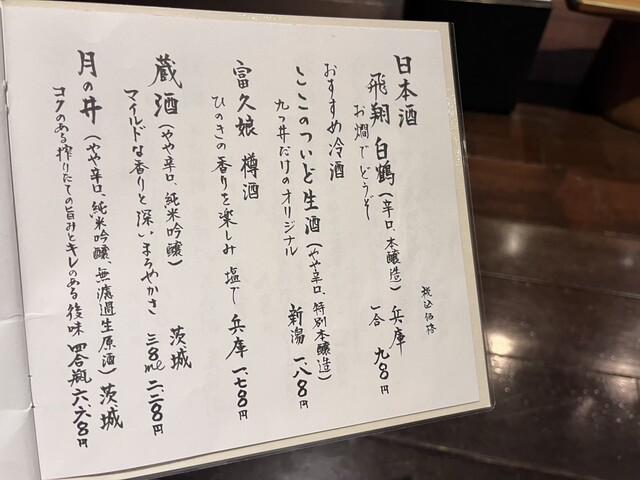 日本酒
税込価格
飛翔 白鶴（辛口、本醸造） 兵庫
お燗でどうぞ 一合 九八〇円
おすすめ冷酒
ここのついど生酒（やや辛口、特別本醸造）
九つ井だけのオリジナル 新潟 一、一八〇円
富久娘 樽酒
ひのきの香りを楽しみ 塩で 兵庫 一、七八〇円
蔵酒（やや辛口、純米吟醸） 茨城
マイルドな香りと深いまろやかさ 三〇〇ml 二、二八〇円
月の井（やや辛口、純米吟醸、無濾過生原酒）茨城
コクのある搾りたての旨みとキレのある後味 四合瓶 六、六八〇円